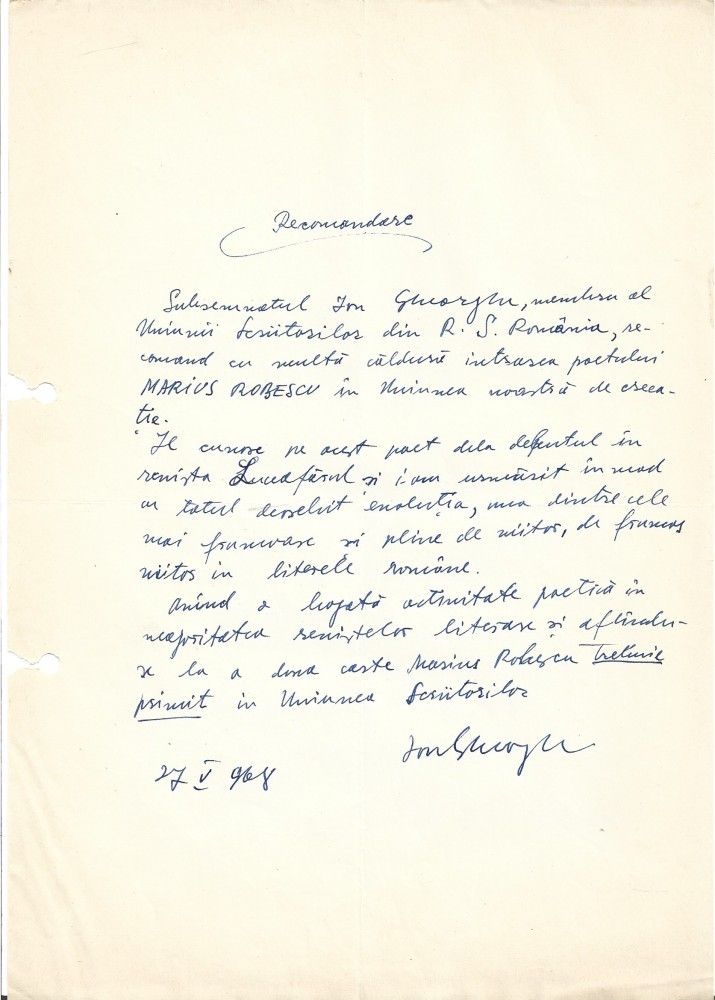 Recomandare
Subsemnatul Ion Gheorghe, membru al
Uniunii Scriitorilor din R. S. România, re-
comand cu multă căldură intrarea poetului
MARIUS ROBESCU în Uniunea noastră de crea-
ție.
Îl cunosc pe acest poet dela debutul în
revista Luceafărul și i-am urmărit în mod
cu totul deosebit evoluția, una dintre cele
mai frumoase și pline de viitor, de frumos
viitor in literele române.
Avînd o bogată activitate poetică în
majoritatea revistelor literare și aflîndu-
se la a doua carte Marius Robescu trebuie
primit in Uniunea Scriitorilor
Ion Gheorghe
27 V 968